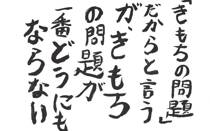 「きもちの問題」
だからと言う
が、きもち
の問題が
一番どうにも
ならない